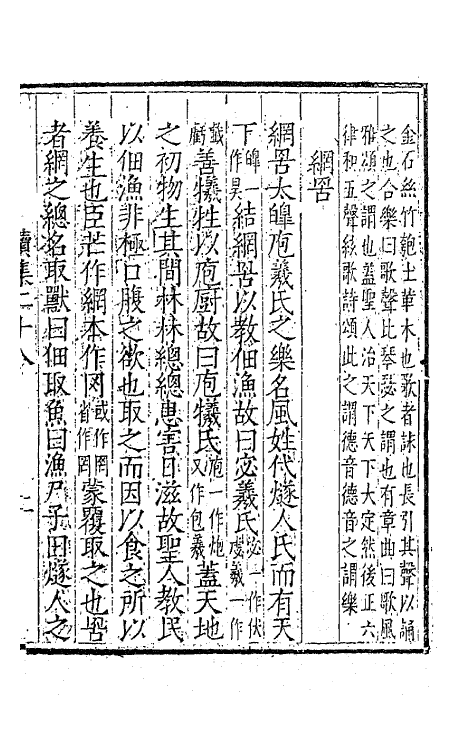 金石絲竹匏土革木也歌者詠也長引其聲以誦
之也合樂曰歌聲比琴瑟之謂也有章曲曰歌風
雅頌之謂也蓋聖人治天下天下大定然後正六
律和五聲絃歌詩頌此之謂德音德音之謂樂
網罟
網罟太皥庖羲氏之樂名風姓代燧人氏而有天
下皥一作昊結網罟以教佃漁故曰宓羲氏宓一作伏虙羲一作戲
善犧牲以庖厨故曰庖犧氏庖一作炮又作包羲蓋天地
之初物生其間林林總總患害日滋故聖人教民
以佃漁非極口腹之欲也取之而因以食之所以
養生也臣芒作網本作网或作罔省作罒蒙覆取之也罟
者網之總名取獸曰佃取魚曰漁尸子曰燧人之
續集二十八